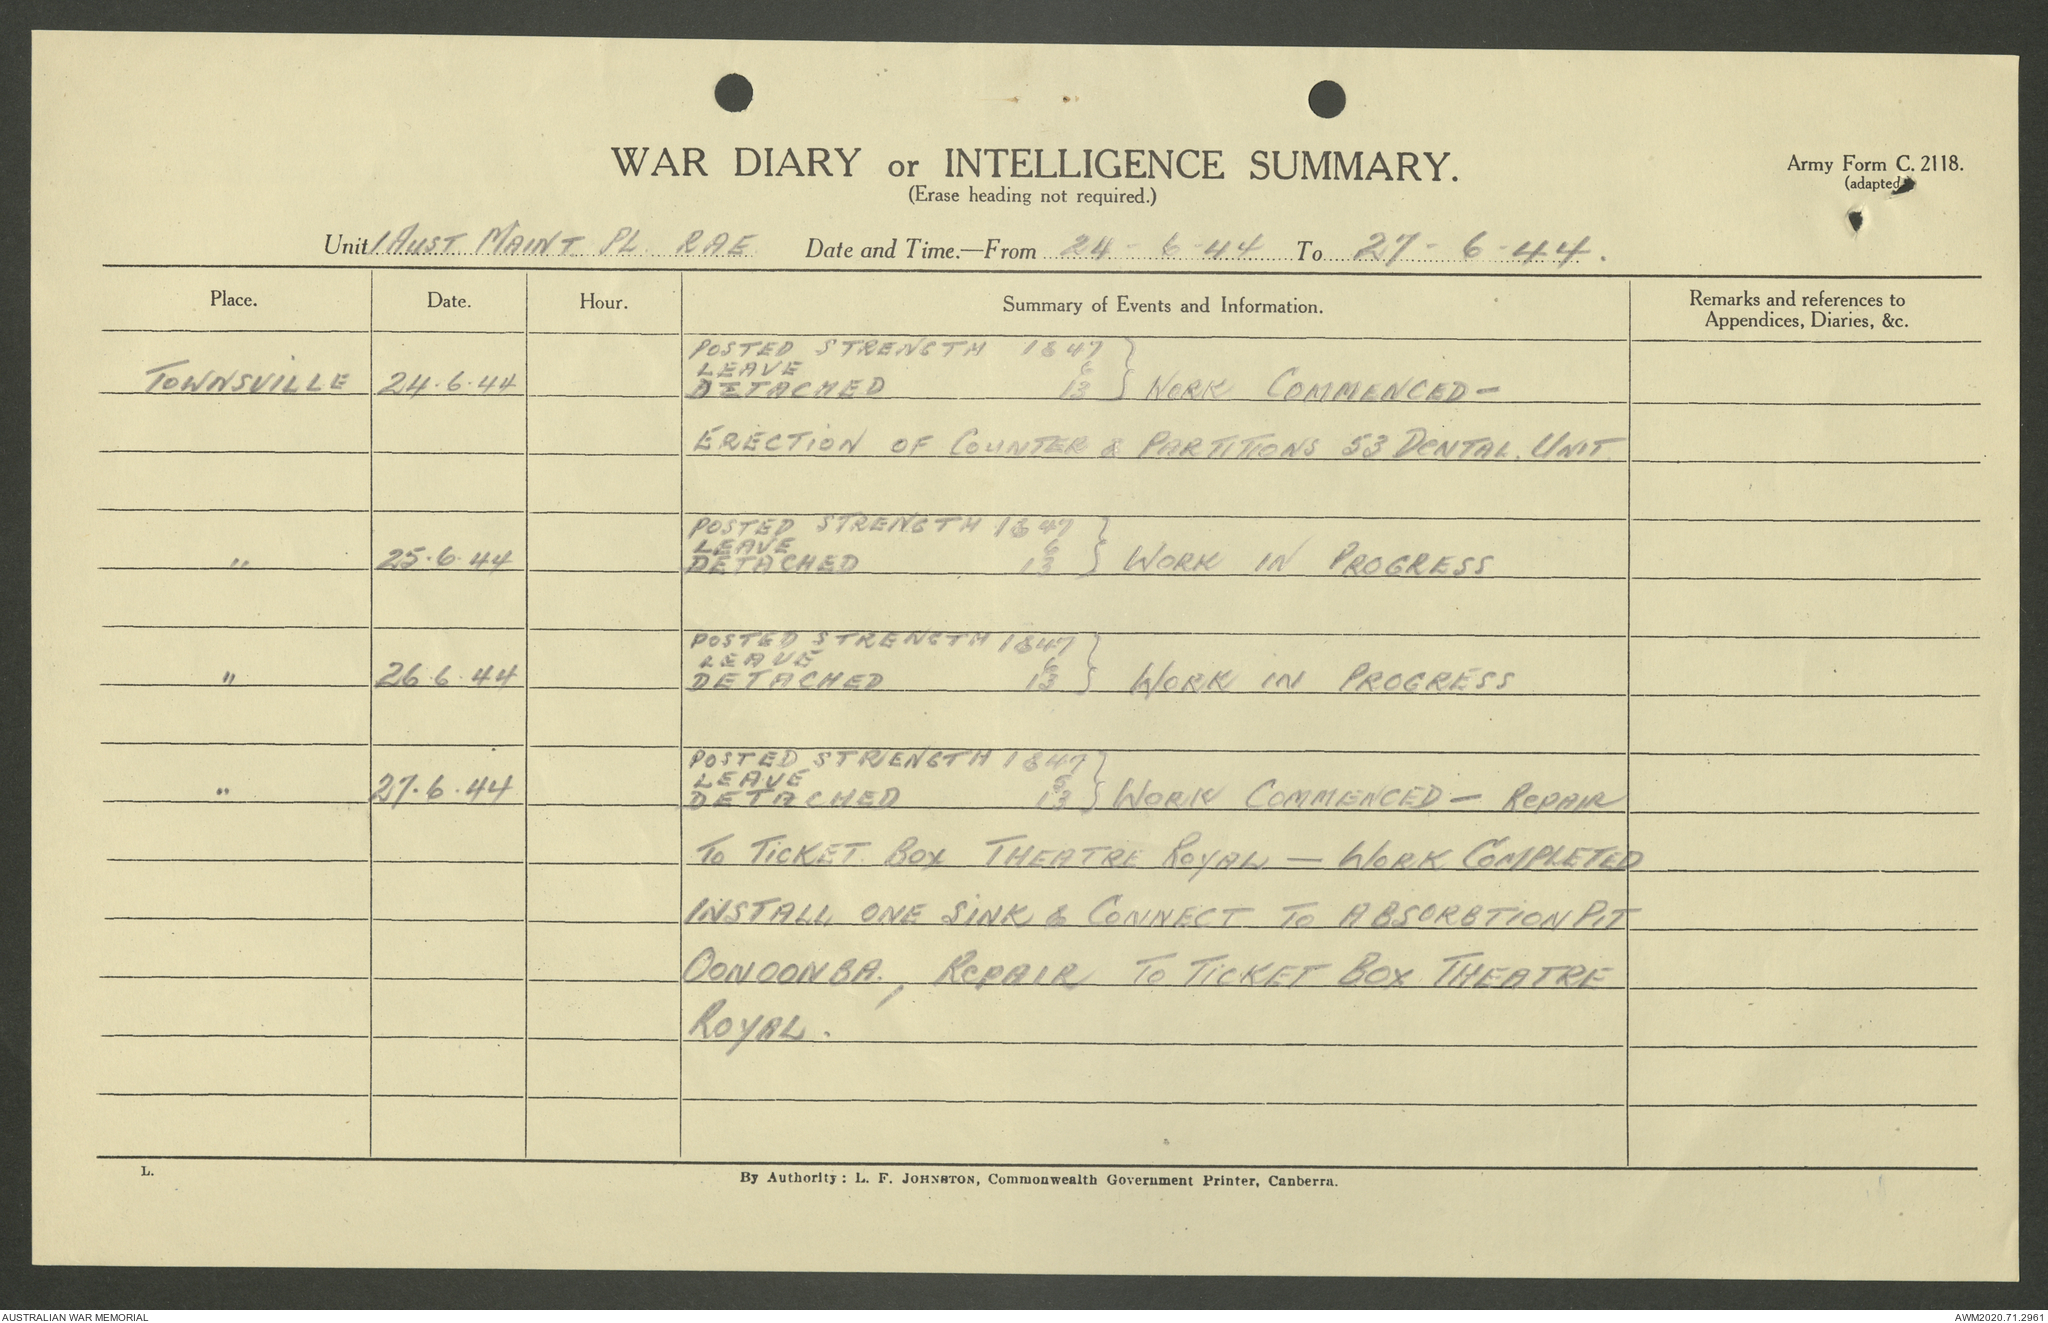 WAR DIARY or INTELLIGENCE SUMMARY.
(Erase heading not required.)
Army Form C. 2118.
(adapted)
Unit 1 AUST. MAINT. PL. RAE Date and Time.—From 24-6-44 To 27-6-44.
Place. Date. Hour. Summary of Events and Information. Remarks and references to
Appendices, Diaries, &c.
POSTED STRENGTH 1847
LEAVE 6
TOWNSVILLE 24.6.44 DETACHED 13 } WORK COMMENCED —
ERECTION OF COUNTER & PARTITIONS 53 DENTAL. UNIT.
POSTED STRENGTH 1847
LEAVE 6
" 25.6.44 DETACHED 13 } WORK IN PROGRESS
POSTED STRENGTH 1847
LEAVE 6
" 26.6.44 DETACHED 13 } WORK IN PROGRESS
POSTED STRENGTH 1847
LEAVE 5
" 27.6.44 DETACHED 13 } WORK COMMENCED — REPAIR
TO TICKET BOX THEATRE ROYAL — WORK COMPLETED
INSTALL ONE SINK & CONNECT TO ABSORBTION PIT
OONOONBA, REPAIR TO TICKET BOX THEATRE
ROYAL.
L.
By Authority: L. F. JOHNSTON, Commonwealth Government Printer, Canberra.
AUSTRALIAN WAR MEMORIAL
AWM2020.71.2961